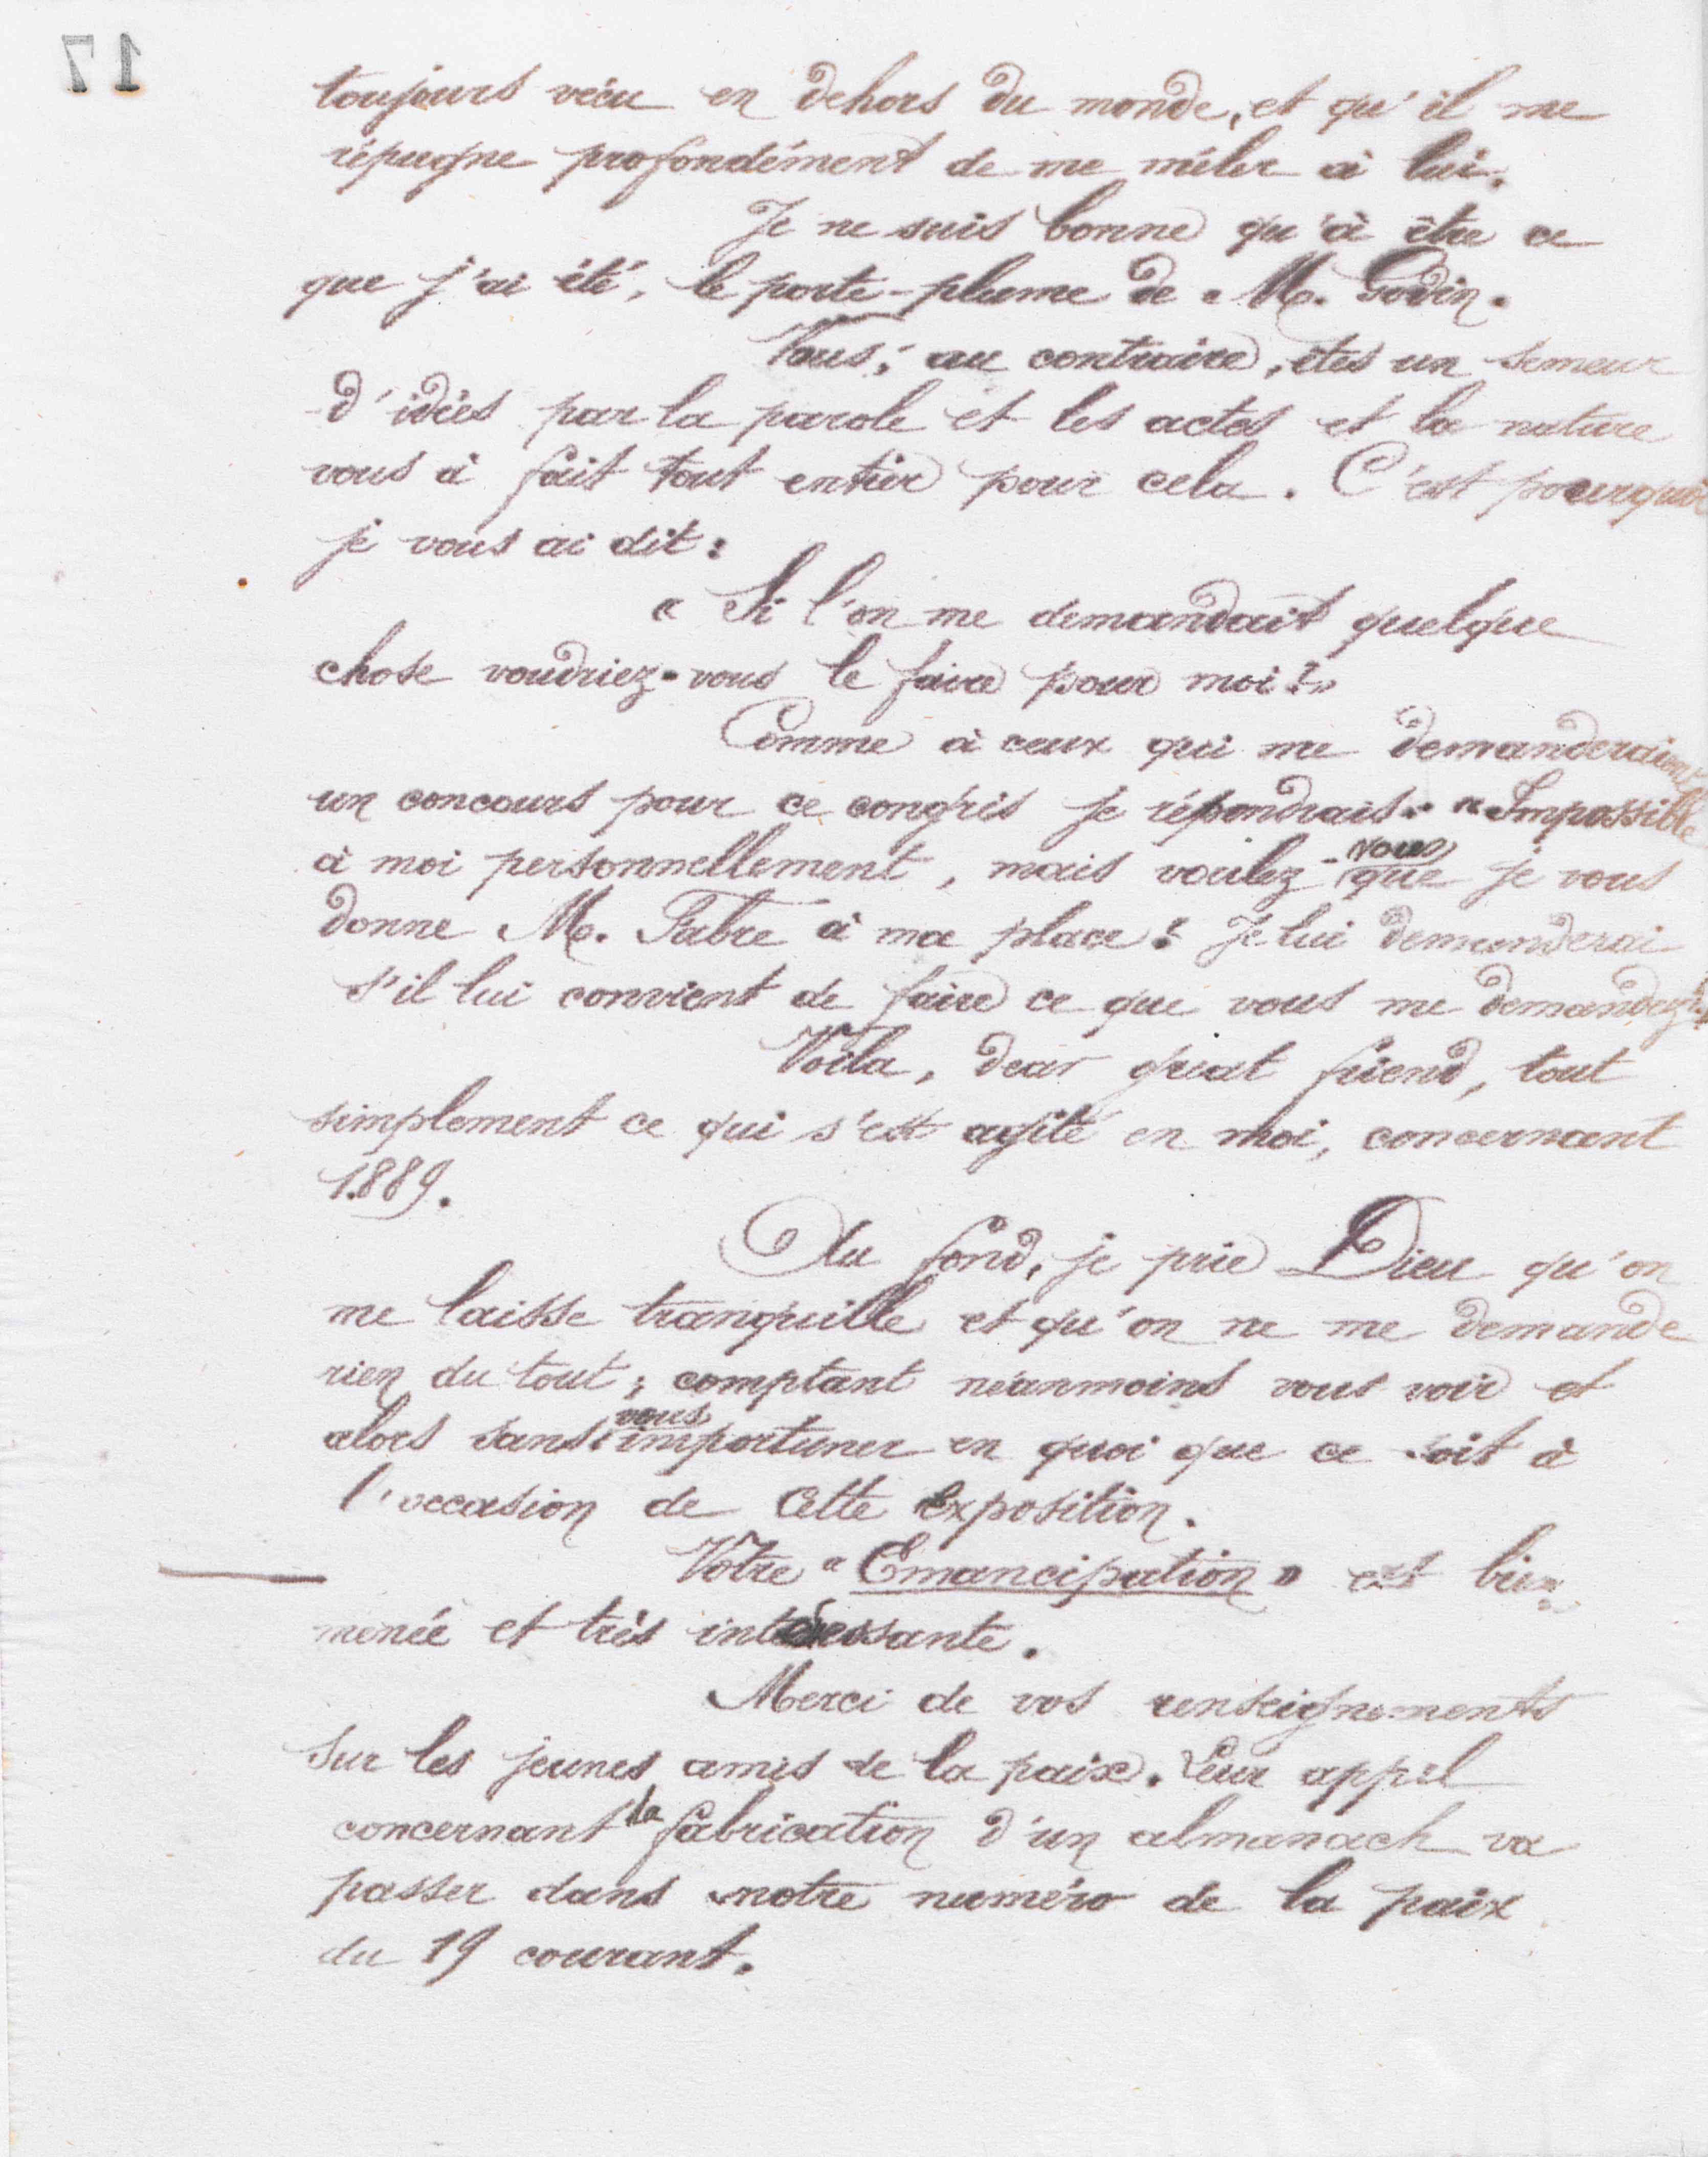 17
toujours vécu en dehors du monde, et qu'il me
répugne profondément de me mêler à lui.
Je ne suis bonne qu'à être ce
que j'ai été, le porte-plume de M. Godin.
Vous, au contraire, êtes un semeur
d'idées par la parole et les actes et la nature
vous à fait tout entier pour cela. C'est pourquoi
je vous ai dit :
« Si l'on me demandait quelque
chose voudriez-vous le faire pour moi ? »
Comme à ceux qui me demanderaient
un concours pour ce congrès je répondrais : « Impossible
à moi personnellement, mais voulez-vous que je vous
donne M. Fabre à ma place ? Je lui demanderai
s'il lui convient de faire ce que vous me demandez ! »
Voilà, dear great friend, tout
simplement ce qui s'est agité en moi, concernant
1889.
Au fond, je prie Dieu qu'on
me laisse tranquille et qu'on ne me demande
rien du tout ; comptant néanmoins vous voir et
alors sans vous importuner en quoi que ce soit à
l'occasion de cette exposition.
Votre « Emancipation » est bien
menée et très intéressante.
Merci de vos renseignements
sur les jeunes amis de la paix. Leur appel
concernant la fabrication d'un almanach va
passer dans notre numéro de la paix
du 19 courant.